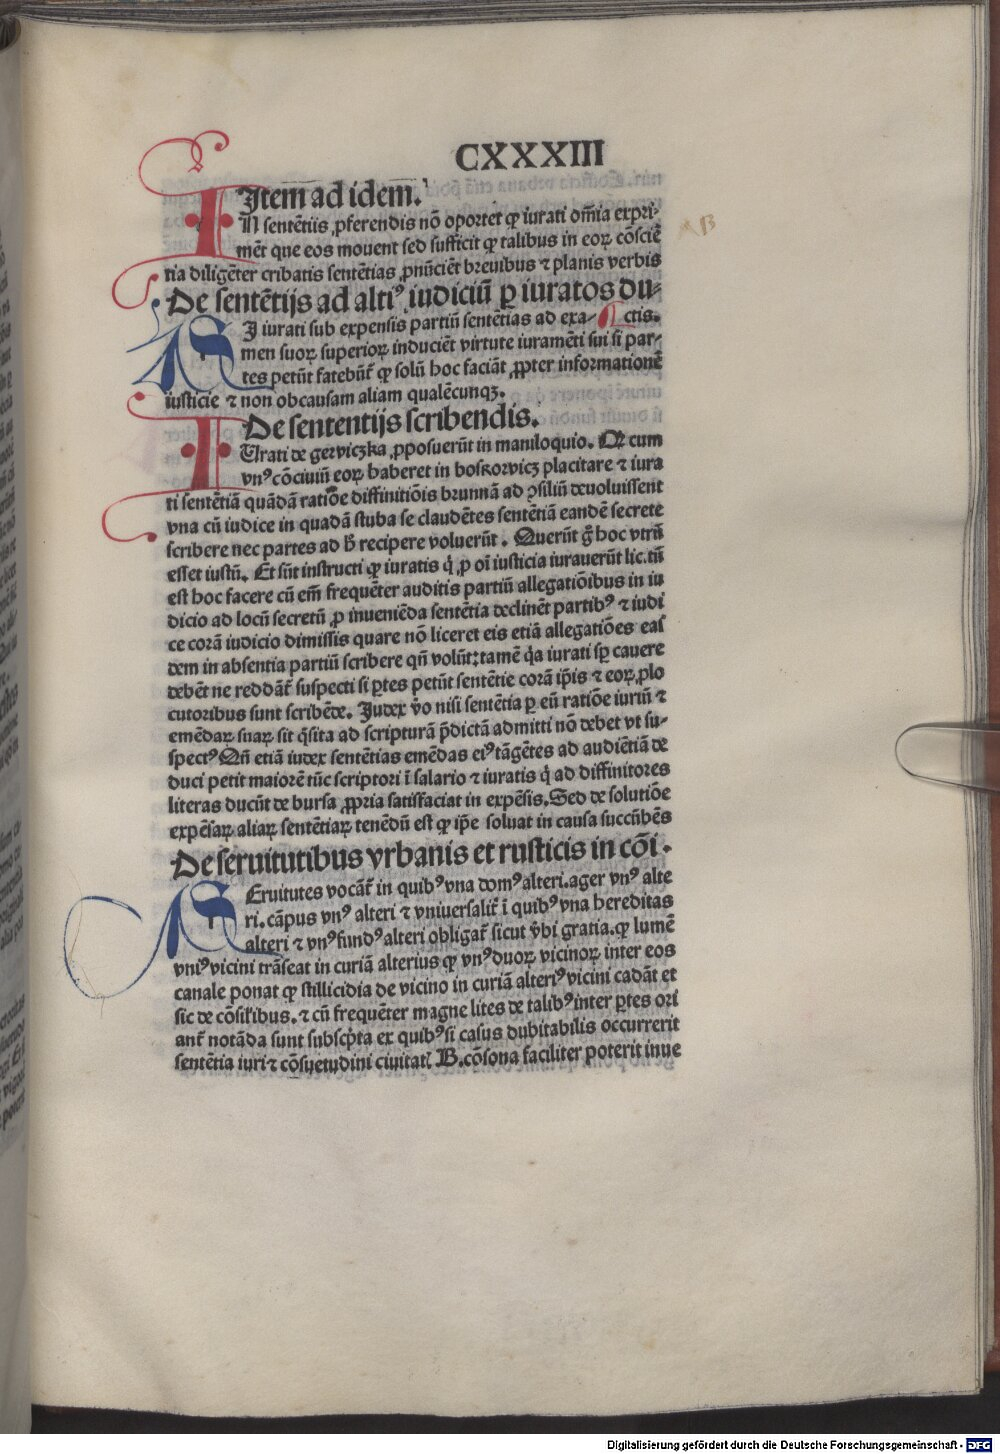 CXXXIII
Item ad idem.
IN sentẽtiis ꝓferendis nõ oportet ꝙ iurati om̃ia expri⸗
mẽt que eos mouent sed sufficit ꝙ talibus in eoꝝ cõsciẽ
tia diligẽter cribatis sentẽtias ꝓnũciẽt breuibus ⁊ planis verbis
De sentẽtijs ad altiꝰ iudiciũ ꝑ iuratos du⸗
SI iurati sub expensis partiũ sentẽtias ad exa⸗ ctis.
men suoꝝ superioꝝ induciẽt virtute iuramẽti sui si par⸗
tes petũt fatebũt̃ ꝙ solũ hoc faciãt ꝓpter informationẽ
iusticie ⁊ non obcausam aliam qualẽcunqꝫ.
De sententijs scribendis.
IUrati de gerviczka ꝓposuerũt in maniloquio. Qꝛ cum
vnꝰ cõciuiũ eoꝝ haberet in boskorvicz placitare ⁊ iura
ti sentẽtiã quãdã ratiõe diffinitiõis brunnã ad ꝯsiliũ deuoluissent
vna cũ iudice in quadã stuba se claudẽtes sentẽtiã eandẽ secrete
scribere nec partes ad h̃ recipere voluerũt. Querũt g̃ hoc vtrũ
esset iustũ. Et sũt instructi ꝙ iuratis q̇ ꝓ oĩ iusticia iurauerũt lic. tũ
est hoc facere cũ em̃ frequẽter auditis partiũ allegatiõibus in iu
dicio ad locũ secretũ ꝓ inueniẽda sentẽtia declinẽt partibꝰ ⁊ iudi
ce corã iudicio dimissis quare nõ liceret eis etiã allegatiões eaſ
dem in absentia partiũ scribere qñ volũt: tamẽ q̇a iurati sꝑ cauere
debẽt ne reddãt̃ suspecti si ꝑtes petũt sentẽtie corã ip̃is ⁊ eoꝝ ꝓlo
cutoribus sunt scribẽde. Iudex v̊o nisi sentẽtia ꝑ eũ ratiõe iuriũ ⁊
emẽdaꝝ suaꝝ sit q̇sita ad scripturã p̃dictã admitti nõ debet vt su⸗
spectꝰ Qñ etiã iudex sentẽtias emẽdas eiꝰ tãgẽtes ad audiẽtiã de
duci petit maiorẽ tũc scriptori ĩ salario ⁊ iuratis q̇ ad diffinitores
literas ducũt de bursa ꝓpria satisfaciat in expẽsis. Sed de solutiõe
expẽsaꝝ aliaꝝ sentẽtiaꝝ tenẽdũ est ꝙ ip̃e soluat in causa succũbẽs
De seruitutibus vrbanis et rusticis in cõi.
SEruitutes vocãt̃ in quibꝰ vna domꝰ alteri. ager vnꝰ alte
ri. cãpus vnꝰ alteri ⁊ vniuersalit̃ ĩ quibꝰ vna hereditas
alteri ⁊ vnꝰ fundꝰ alteri obligat̃ sicut v̊bi gratia. ꝙ lumẽ
vniꝰ vicini trãseat in curiã alterius ꝙ vnꝰ duoꝝ vicinoꝝ inter eos
canale ponat ꝙ stillicidia de vicino in curiã alteriꝰ vicini cadãt et
sic de cõsil̃ibus. ⁊ cũ frequẽter magne lites de talibꝰ inter ꝑtes ori
ant̃ notãda sunt subscp̃ta ex quibꝰ si casus dubitabilis occurrerit
sentẽtia iuri ⁊ cõsuetudini ciuitatꝭ B. cõsona faciliter poterit inue
Digitalisierung gefördert durch die Deutsche Forschungsgemeinschaft - DFG